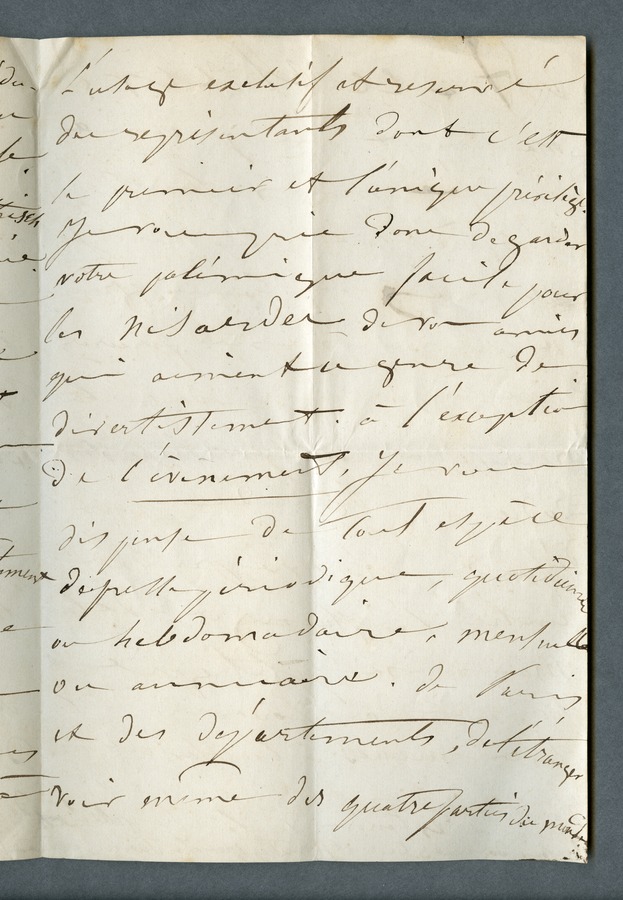 l'usage exclusif et reservé
des représentants dont c'est
le premier et l'unique privilège.
Je vous prie donc de garder
votre polémique facile pour
les de vos amies
qui aiment ce genre de
divertissement. à l'exception
de l'évènement, je vous
dispense de tout espèce
de presse périodique, quotidienne
ou hebdomadaire, mensuelle
ou annuaire. de Paris
et des départements, de l'étranger
voir même des quatre parties du monde